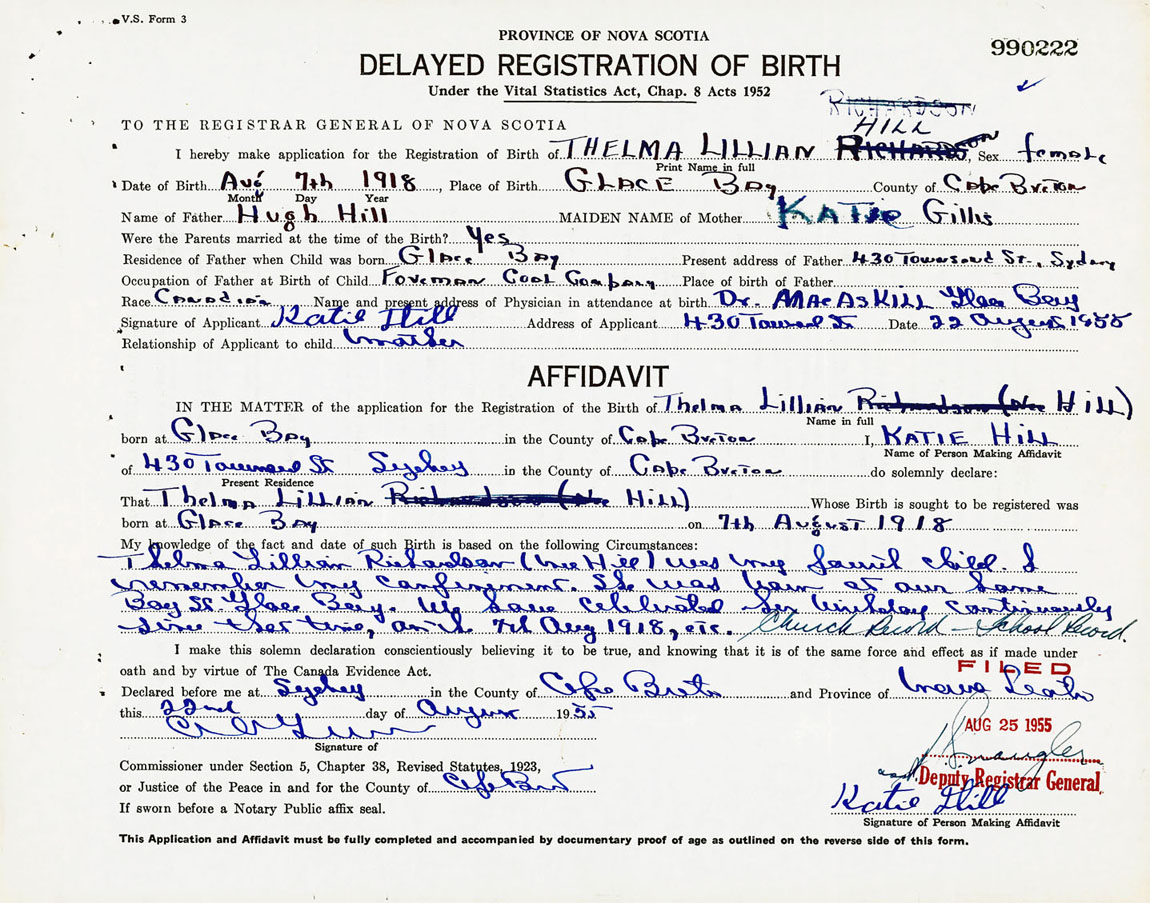 V.S. Form 3
PROVINCE OF NOVA SCOTIA
990222
DELAYED REGISTRATION OF BIRTH
Under the Vital Statistics Act, Chap. 8 Acts 1952
RICHARDSON
HILL
TO THE REGISTRAR GENERAL OF NOVA SCOTIA
I hereby make application for the Registration of Birth of THELMA LILLIAN RICHARDSON, Sex female
Print Name in full
Date of Birth Aug 7th 1918, Place of Birth GLACE BAY County of Cape Breton
Month Day Year
Name of Father Hugh Hill MAIDEN NAME of Mother KATIE Gillis
Were the Parents married at the time of the Birth? Yes
Residence of Father when Child was born Glace Bay Present address of Father 430 Townsend St., Sydney
Occupation of Father at Birth of Child Foreman Coal Company Place of birth of Father
Race Canadian Name and present address of Physician in attendance at birth Dr. MacAskill Glace Bay
Signature of Applicant Katie Hill Address of Applicant 430 Townsend St Date 22 August 1955
Relationship of Applicant to child mother
AFFIDAVIT
IN THE MATTER of the application for the Registration of the Birth of Thelma Lillian Richardson (Nee Hill)
Name in full
born at Glace Bay in the County of Cape Breton I, KATIE HILL
Name of Person Making Affidavit
of 430 Townsend St Sydney in the County of Cape Breton do solemnly declare:
Present Residence
That Thelma Lillian Richardson (Nee Hill) Whose Birth is sought to be registered was
born at Glace Bay on 7th August 1918
My knowledge of the fact and date of such Birth is based on the following Circumstances:
Thelma Lillian Richardson (nee Hill) was my child. I
remember my confinement. She was born at our home
Bay St. Glace Bay. We have celebrated her birthday continuously
since that time, 7th Aug 1918, etc. Church Record - School Record.
I make this solemn declaration conscientiously believing it to be true, and knowing that it is of the same force and effect as if made under
oath and by virtue of The Canada Evidence Act.
FILED
Declared before me at Sydney in the County of Cape Breton and Province of Nova Scotia
this 22nd day of August 1955
AUG 25 1955
Signature of
Commissioner under Section 5, Chapter 38, Revised Statutes, 1923,
or Justice of the Peace in and for the County of Cape Breton
Deputy Registrar General
Katie Hill
If sworn before a Notary Public affix seal.
Signature of Person Making Affidavit
This Application and Affidavit must be fully completed and accompanied by documentary proof of age as outlined on the reverse side of this form.